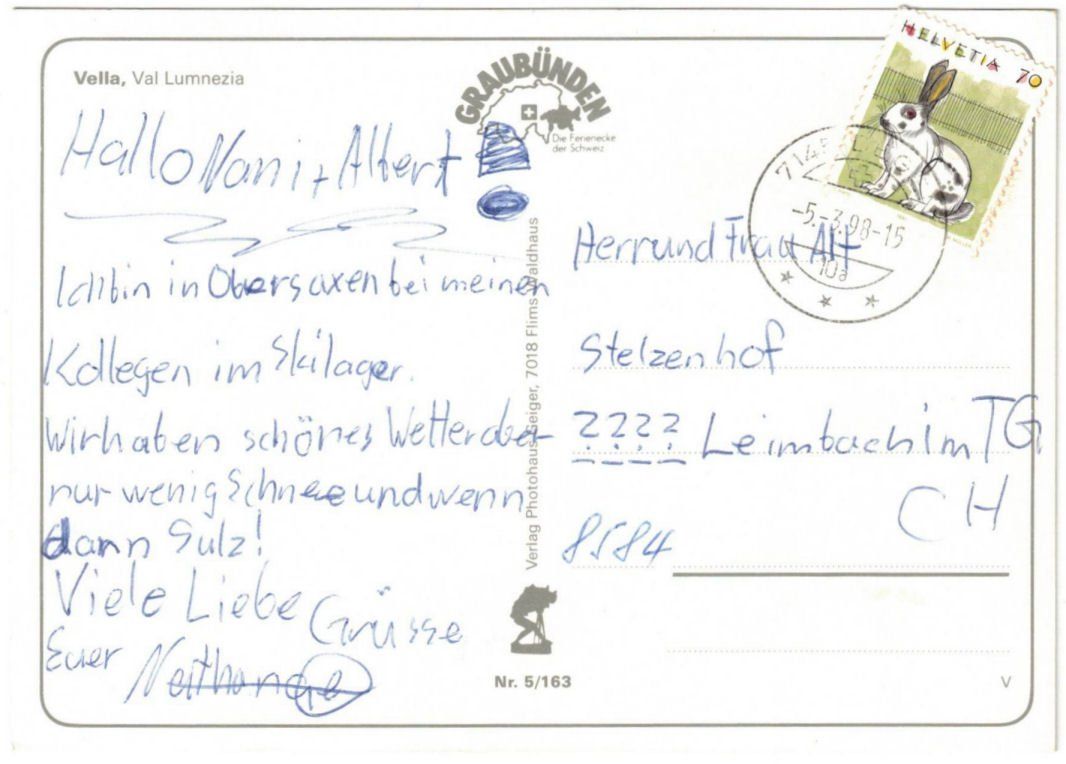 Vella, Val Lumnezia
GRAUBÜNDEN
Die Ferienecke
der Schweiz
HELVETIA 70
Hallo Nani + Albert!
-5.-3.98-15
10a
Ich bin in Obersaxen bei meinen
Kollegen im Skilager.
Wir haben schönes Wetter aber
nur wenig Schnee und wenn
dann Sulz!
Viele Liebe Grüsse
Euer
Verlag Photohaus Geiger, 7018 Flims Waldhaus
Nr. 5/163
Herr und Frau Alt
Stelzenhof
???? Leimbach im TG
CH
8584
V